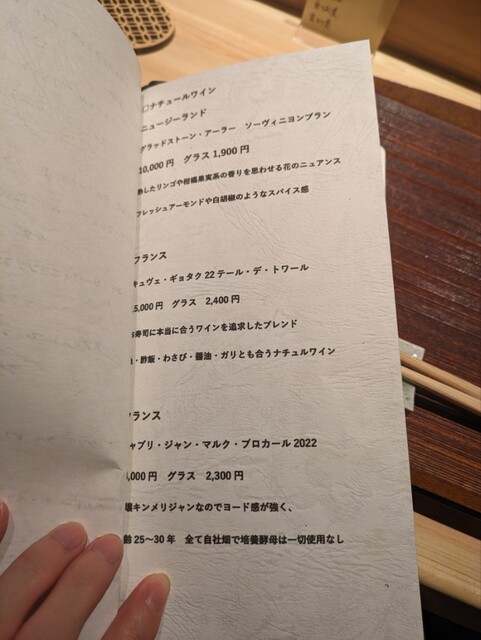 ナチュールワイン
ニュージーランド
グラッドストーン・アーラー　ソーヴィニヨンブラン
10,000円　グラス 1,900円
熟したリンゴや柑橘果実系の香りを思わせる花のニュアンス
フレッシュアーモンドや白胡椒のようなスパイス感
フランス
キュヴェ・ギョタク 22 テール・デ・トワール
5,000円　グラス　2,400円
寿司に本当に合うワインを追求したブレンド
・酢飯・わさび・醤油・ガリとも合うナチュルワイン
フランス
ャブリ・ジャン・マルク・ブロカール 2022
,000円　グラス　2,300円
壌キンメリジャンなのでヨード感が強く、
齢 25～30 年　全て自社畑で培養酵母は一切使用なし